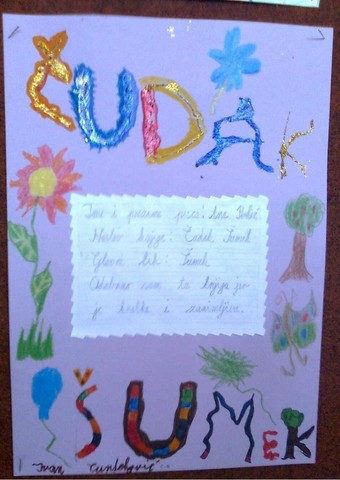 ČUDAK
Ime i prezime pisca: Ana Đokić
Naslov knjige: Čudak Šumek
Glavni lik: Šumek
Odabrao sam tu knjigu jer
je kratka i zanimljiva.
ŠUMEK
Ivan